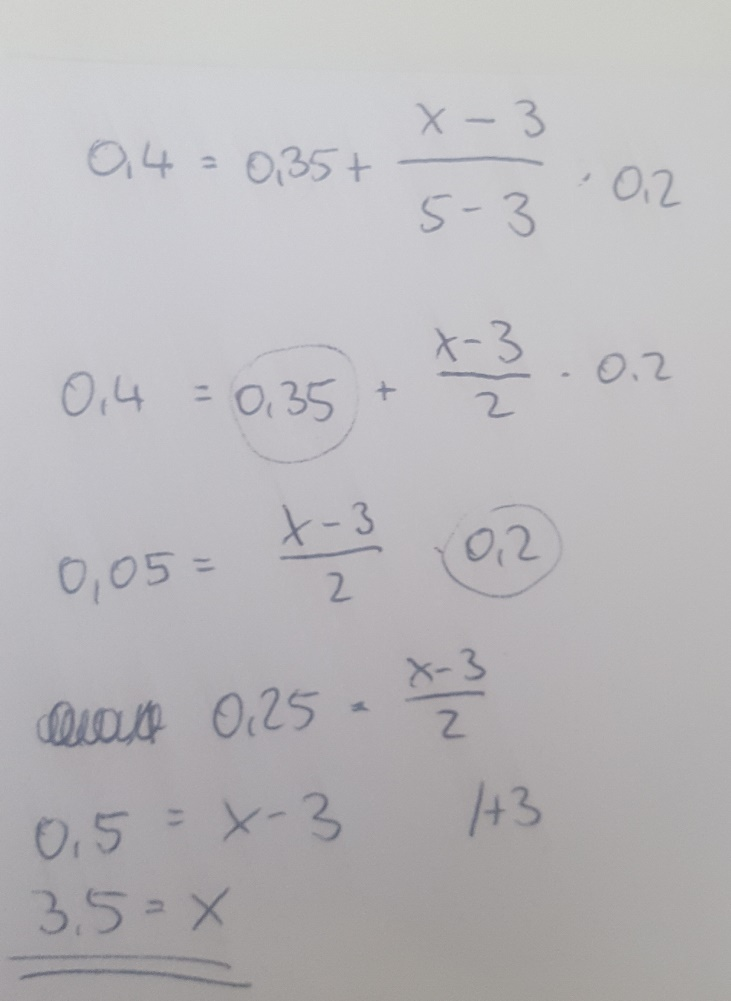 0,4 = 0,35 + (x - 3)/(5 - 3) · 0,2
0,4 = 0,35 + (x-3)/2 · 0.2
0,05 = (x-3)/2 · 0,2
0,25 = (x-3)/2
0,5 = x-3 /+3
3,5 = x